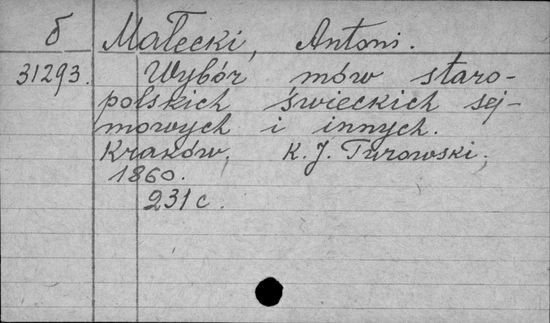 б Małecki, Antoni.
31293. Wybór mów staro-
polskich świeckich sej-
mowych i innych.
Kraków, K. J. Turowski,
1860.
231 c.